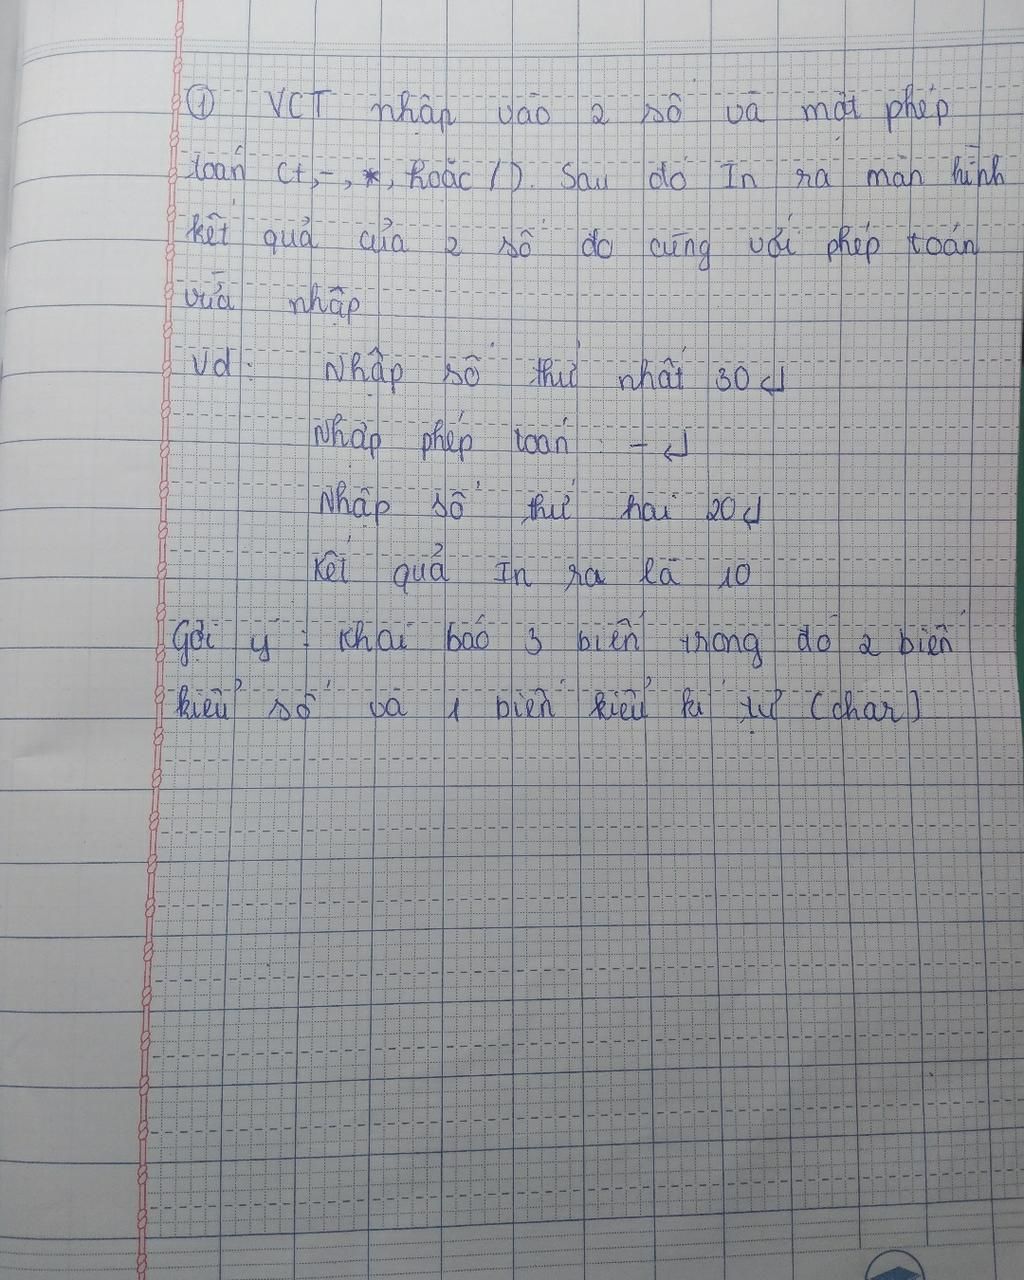 ① VCT nhập vào 2 số và một phép
toán (+, -, *, hoặc /). Sau đó In ra màn hình
kết quả của 2 số đo cùng với phép toán
vừa nhập
Vd: Nhập số thứ nhất 30 ↵
Nhập phép toán: - ↵
Nhập số thứ hai 20 ↵
Kết quả In ra là 10
Gợi ý: Khai báo 3 biến trong đó 2 biến
kiểu số và 1 biến kiểu kí tự (char)